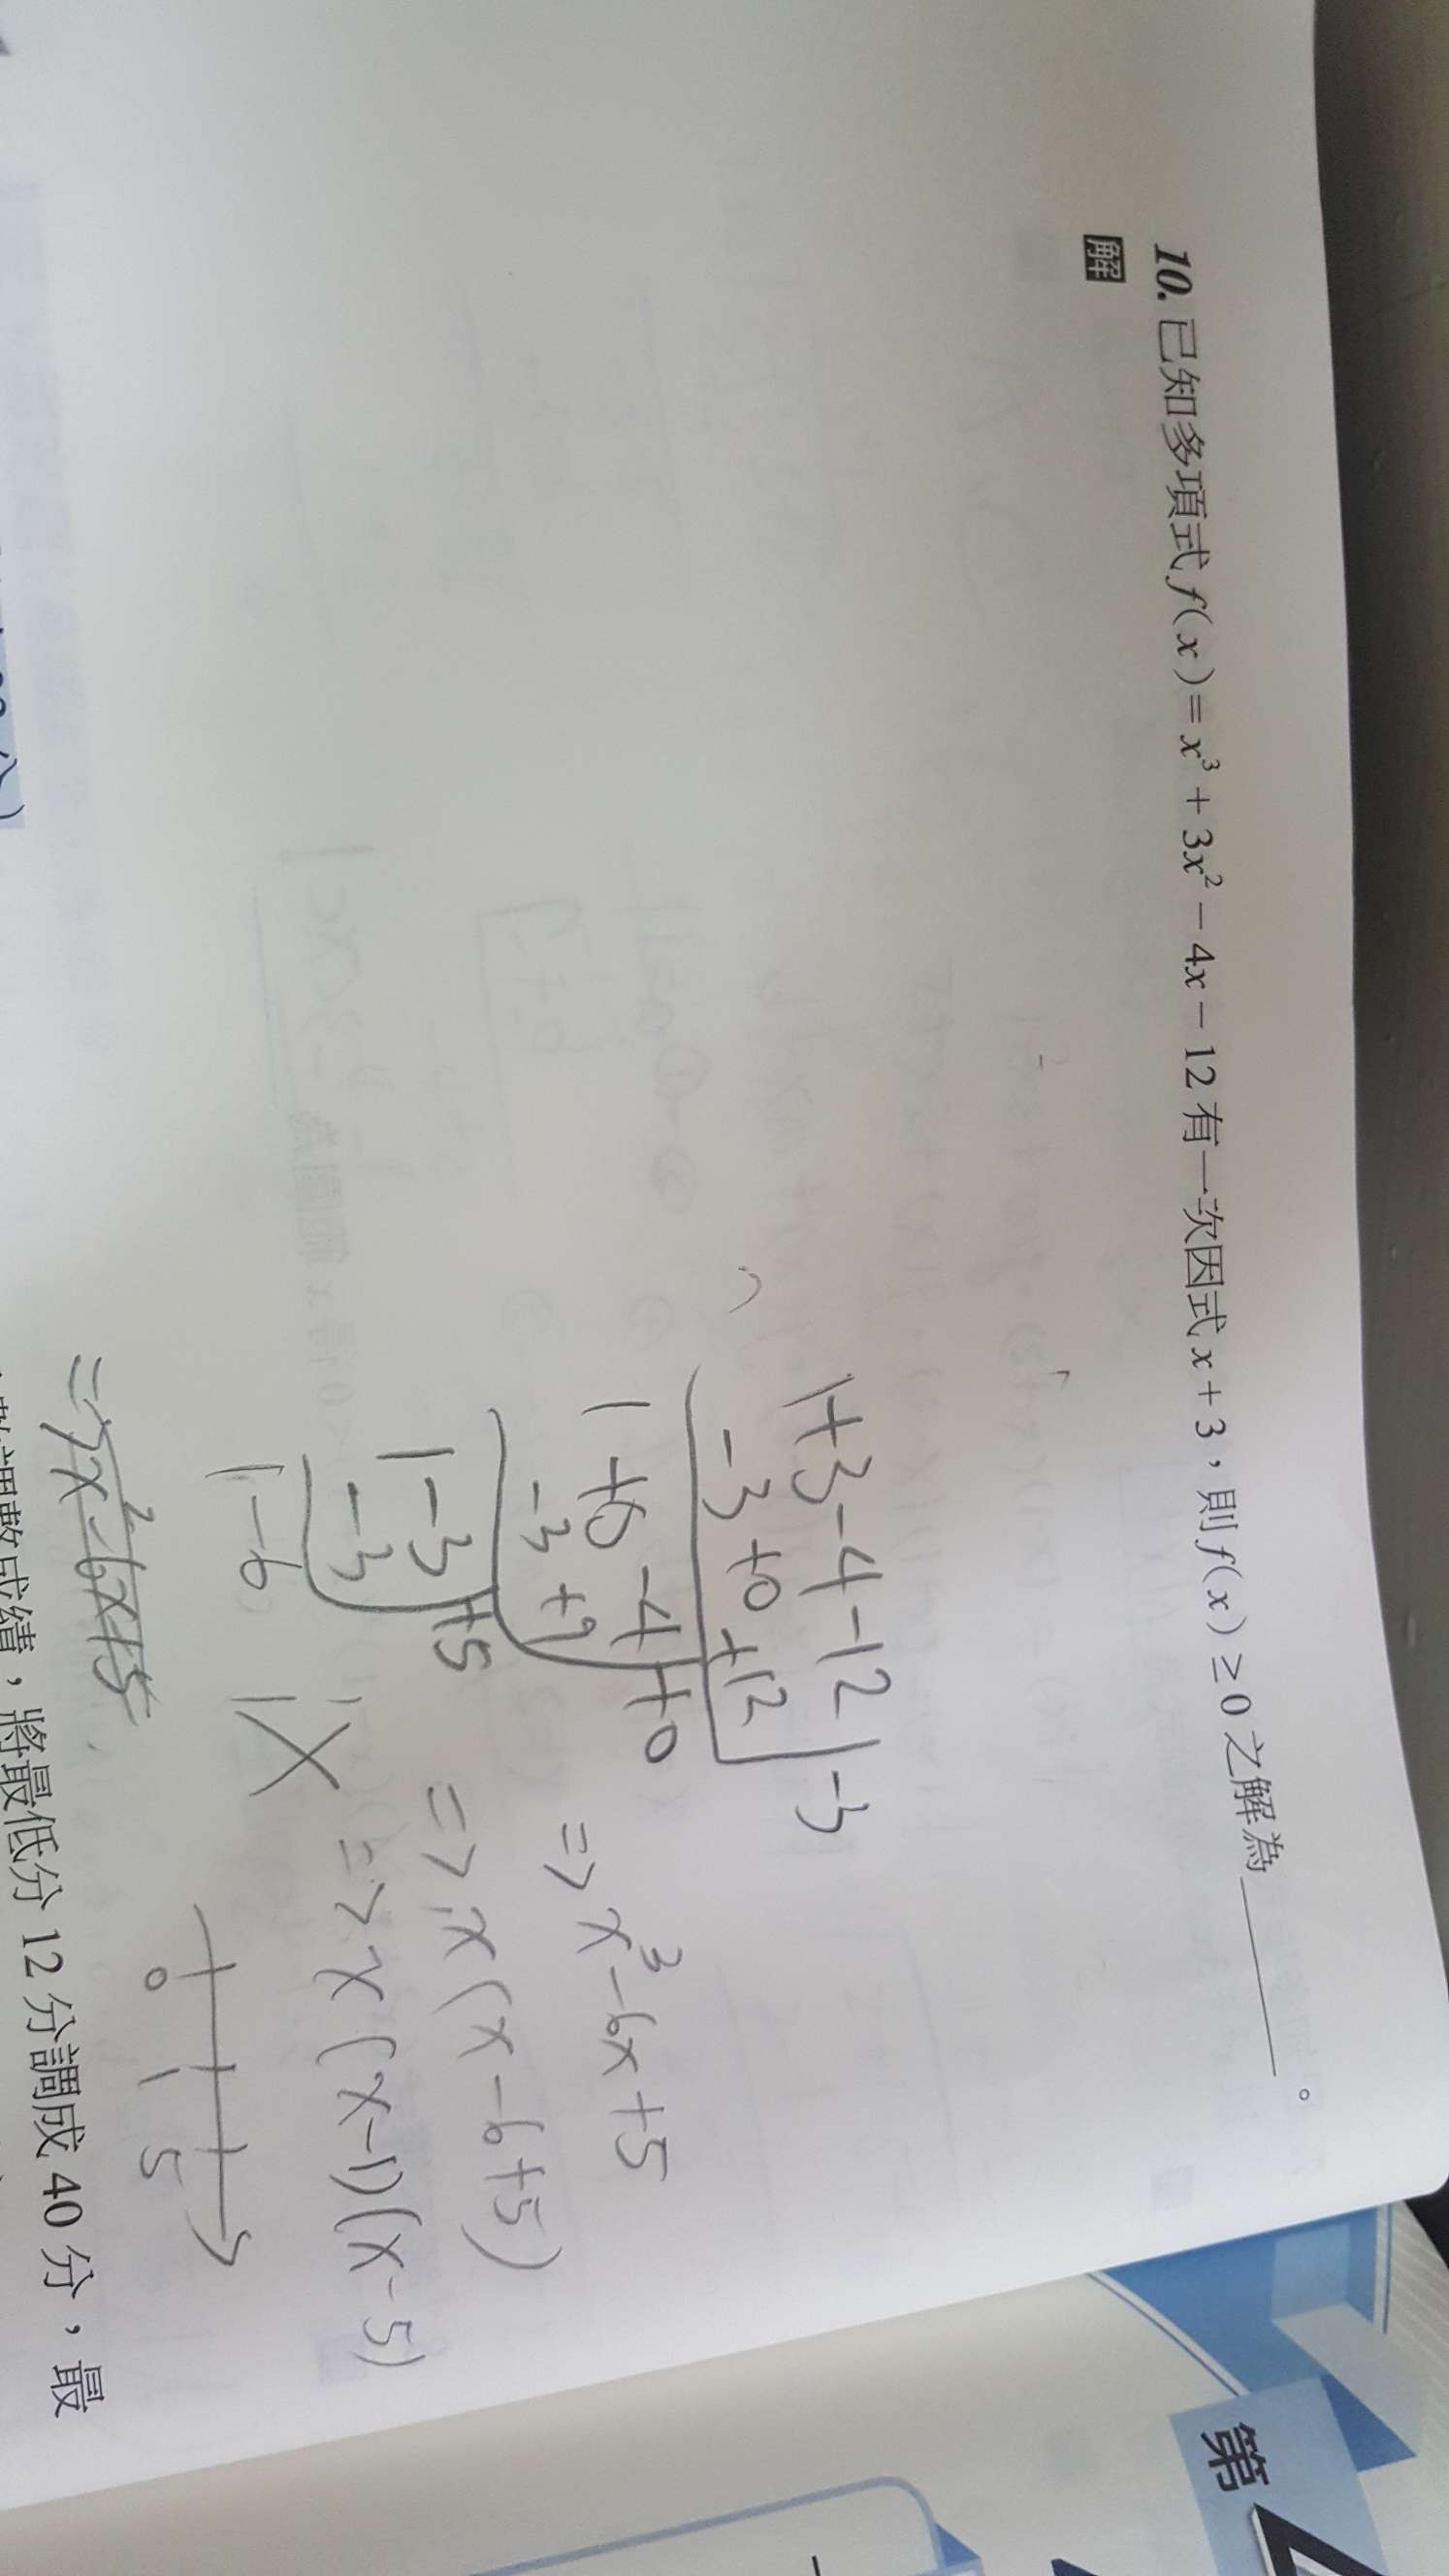 10. 已知多項式 f(x) = x³ + 3x² - 4x - 12 有一次因式 x + 3，則 f(x) ≥ 0 之解為________。
解
1+3-4-12 | -3
-3+0+12
1+0-4+0
-3+9
1-3+5
-3
1-6
=> x³-6x+5
=> x(x-6+5)
=> x(x-1)(x-5)
0 1 5
調整成績，將最低分 12 分調成 40 分，最
第